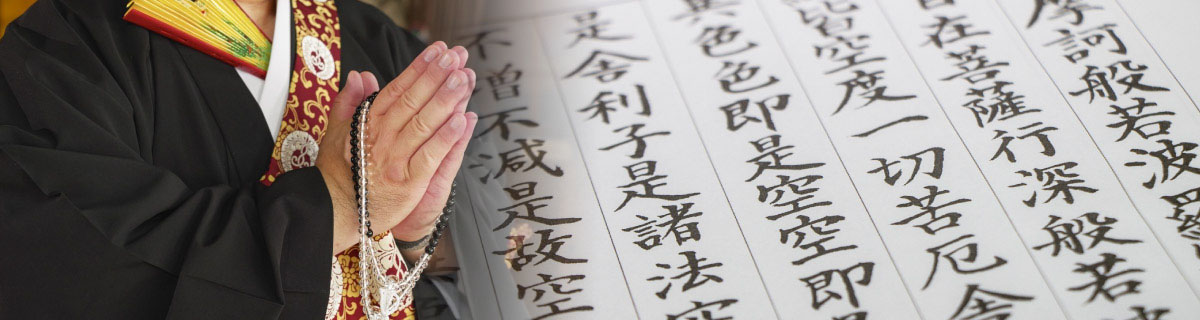 摩訶般若波羅
在菩薩行深般若
皆空度一切苦厄舎
異色色即是空空即
是舎利子是諸法空
不増不減是故空